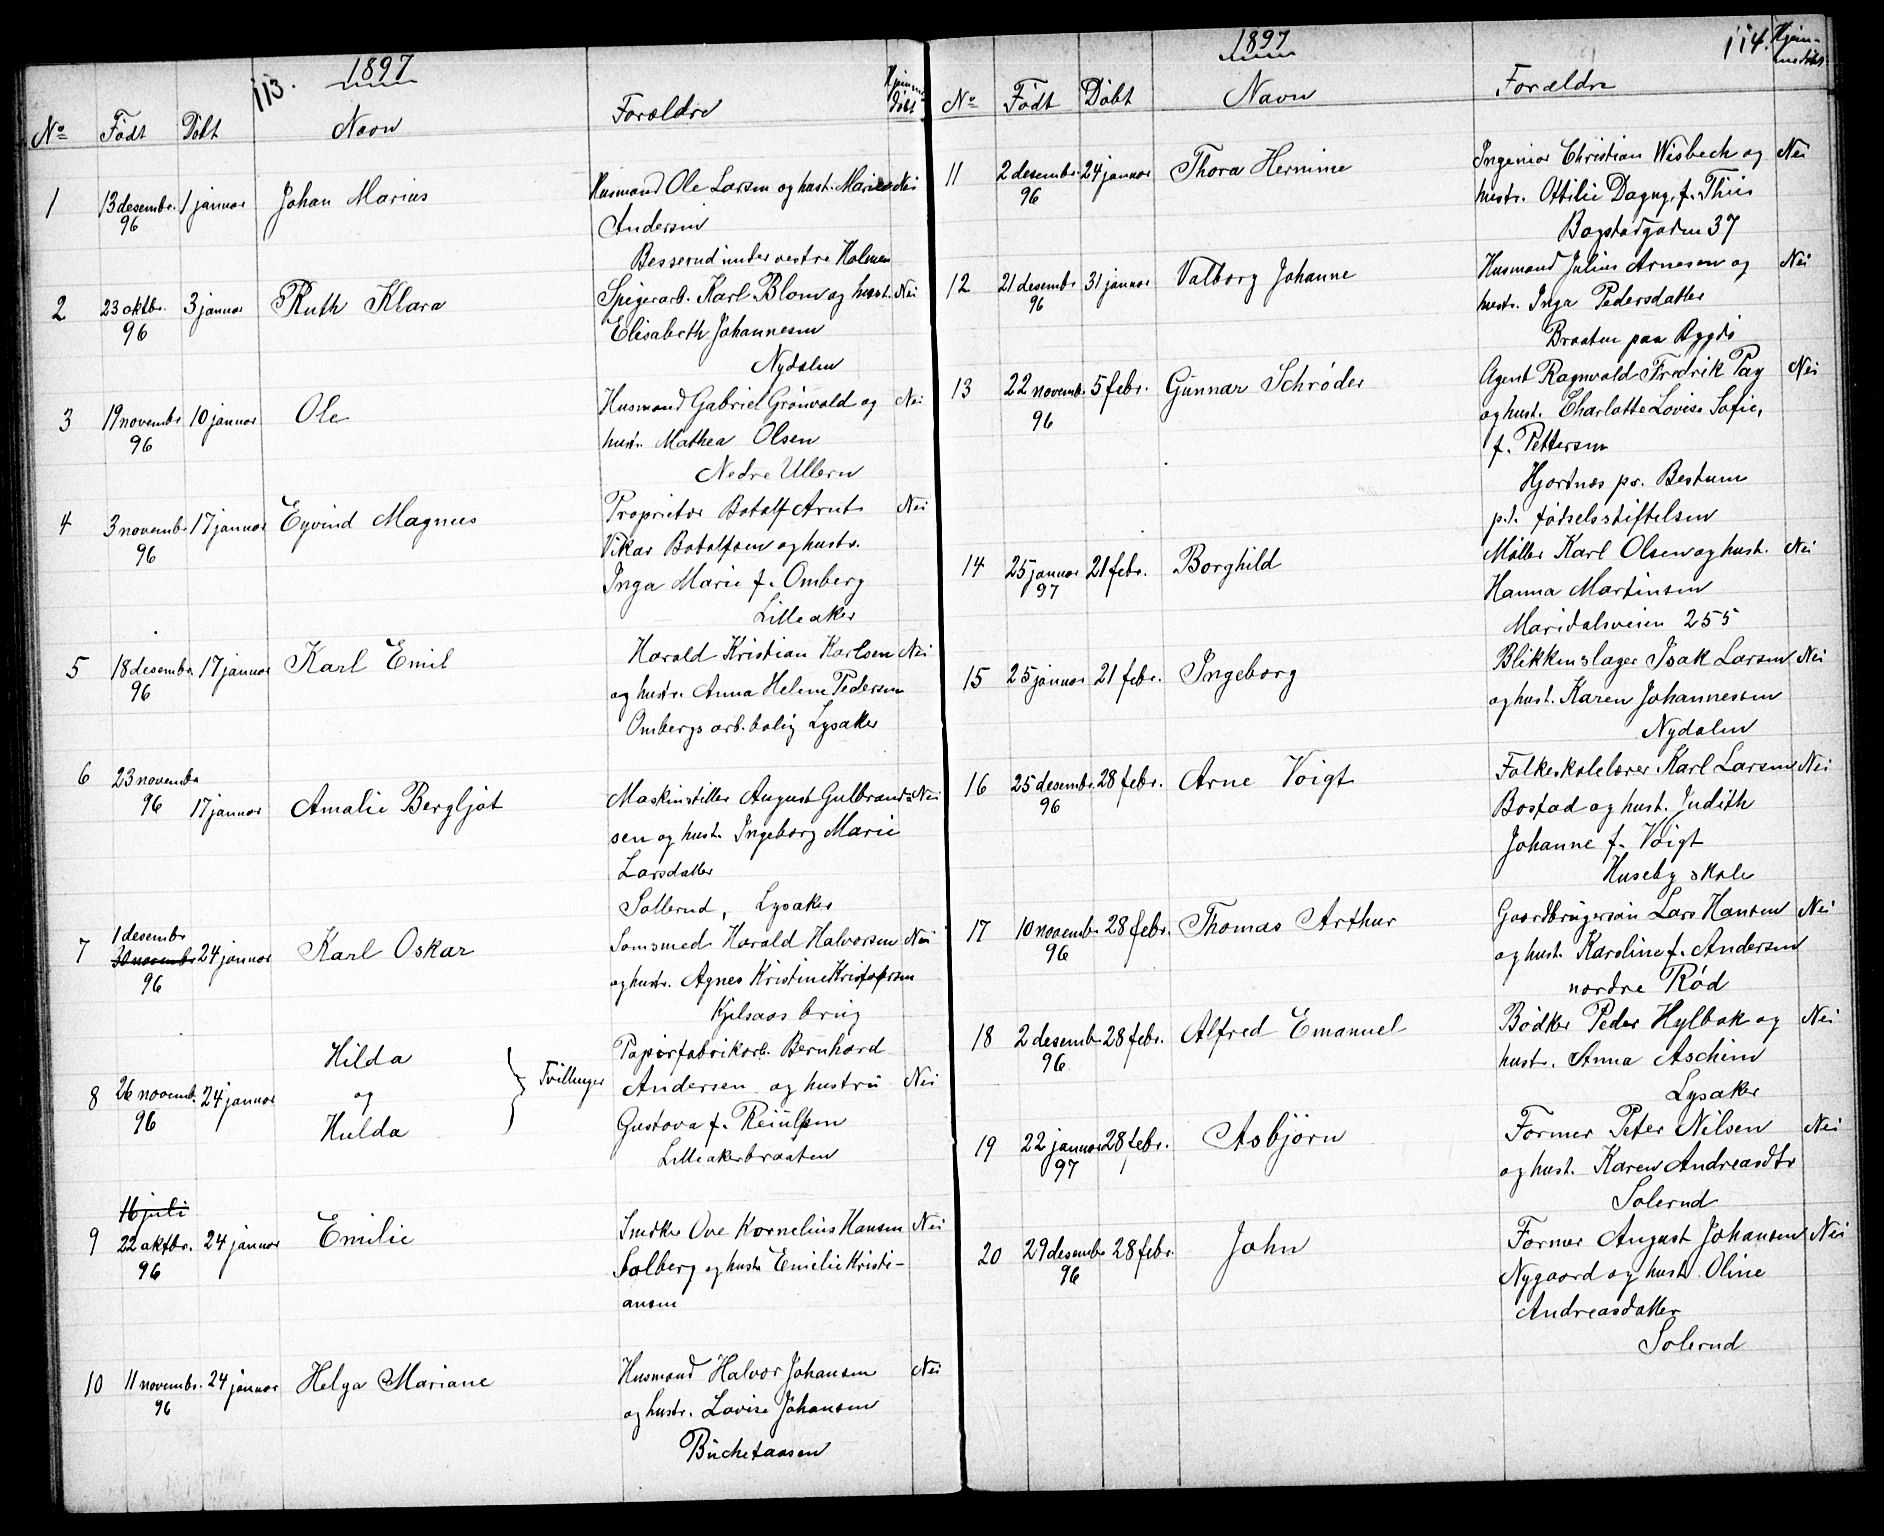 113.
1897
No Født Døbt Navn Forældre Hjemmedøbt
1 13 desembr. 96 1 januar Johan Marius Husmand Ole Larsen og hust. Marie Nei
Andersen
Besserud under vestre Holmen
2 23 oktbr. 96 3 januar Ruth Klara Spigerarb. Karl Blom og hust. Nei
Elisabeth Johannesen
Nydalen
3 19 novembr 96 10 januar Ole Husmand Gabriel Grönvold og Nei
hustr. Mathea Olsen
Nedre Ullern
4 3 novembr 96 17 januar Eyvind Magnus Proprietær Botolf Arnt Nei
Vikar Botolfsen og hustr.
Inga Marie f. Omberg
Lilleaker
5 18 desembr 96 17 januar Karl Emil Harald Kristian Karlsen Nei
og hustr. Anna Helene Pedersen
Ombergs arb. bolig Lysaker
6 23 novembr 96 17 januar Amalie Bergljot Maskinstiller August Gulbrand= Nei
sen og hust. Ingeborg Marie
Larsdatter
Sollerud, Lysaker
7 1 desembr 30 novembr 96 24 januar Karl Oskar Harald Halvorsen Nei
og hustr. Agnes Kristine Kristofersen
Kjelsaas brug
8 26 novemb. 96 24 januar Hilda og Hulda } Tvillinger Papirfabrikarb. Bernhard
Andersen og hustru Nei
Gustava f.
Lilleakerbraaten
9 16 juli 22 oktbr. 96 24 januar Emilie Ove Kornelius Hansen Nei
Solberg og hustr Emilie Kristi-
ansen
10 11 novembr. 96 24 januar Helga Mariane Husmand Halvor Johansen Nei
og hustr. Lovise Johansen
Büchetaasen
114.
1897
No Født Døbt Navn Forældre Hjemmedøbt
11 2 desembr 96 24 januar Thora Hermine Ingeniør Christian Wisbech og Nei
hustr. Ottilie Dagny, f. Thiis
Bogstadgaden 37
12 21 desembr 96 31 januar Valborg Johanne Husmand Julius Arnesen og Nei
hustr. Inga Pedersdatter
Braaten paa Bygdø
13 22 novemb. 96 5 febr. Gunnar Schrøder Agent Ragnvald Fredrik Pay Nei
og hust. Charlotte Lovise Sofie,
f. Pettersen
Hjortnæs pr. Bestum
p.t. fødselsstiftelsen
14 25 januar 97 21 febr. Borghild Møller Karl Olsen og hust. Nei
Hanna Martinsen
Maridalsveien 255
15 25 januar 21 febr. Ingeborg Blikkenslager Isak Larsen Nei
og hust. Karen Johannessen
Nydalen
16 25 desembr. 96 28 febr. Arne Voigt Folkeskolelærer Karl Larsen Nei
Bostad og hust. Judith
Johanne f. Voigt
Huseby skole
17 10 novemb. 96 28 febr. Thomas Arthur Gaardbruger Lars Hansen Nei
og hust. Karoline f. Andersen
nordre Rød
18 2 desemb. 96 28 febr. Alfred Emanuel Bødker Peder Hylbak og Nei
hust. Anna Aschim
Lysaker
19 22 januar 97 28 febr. Asbjørn Former Peter Nilsen Nei
og hust. Karen Andreasdtr
Solerud
20 29 desembr 96 28 febr. John Former August Johansen Nei
Nygaard og hust. Oline
Andreasdatter
Solerud